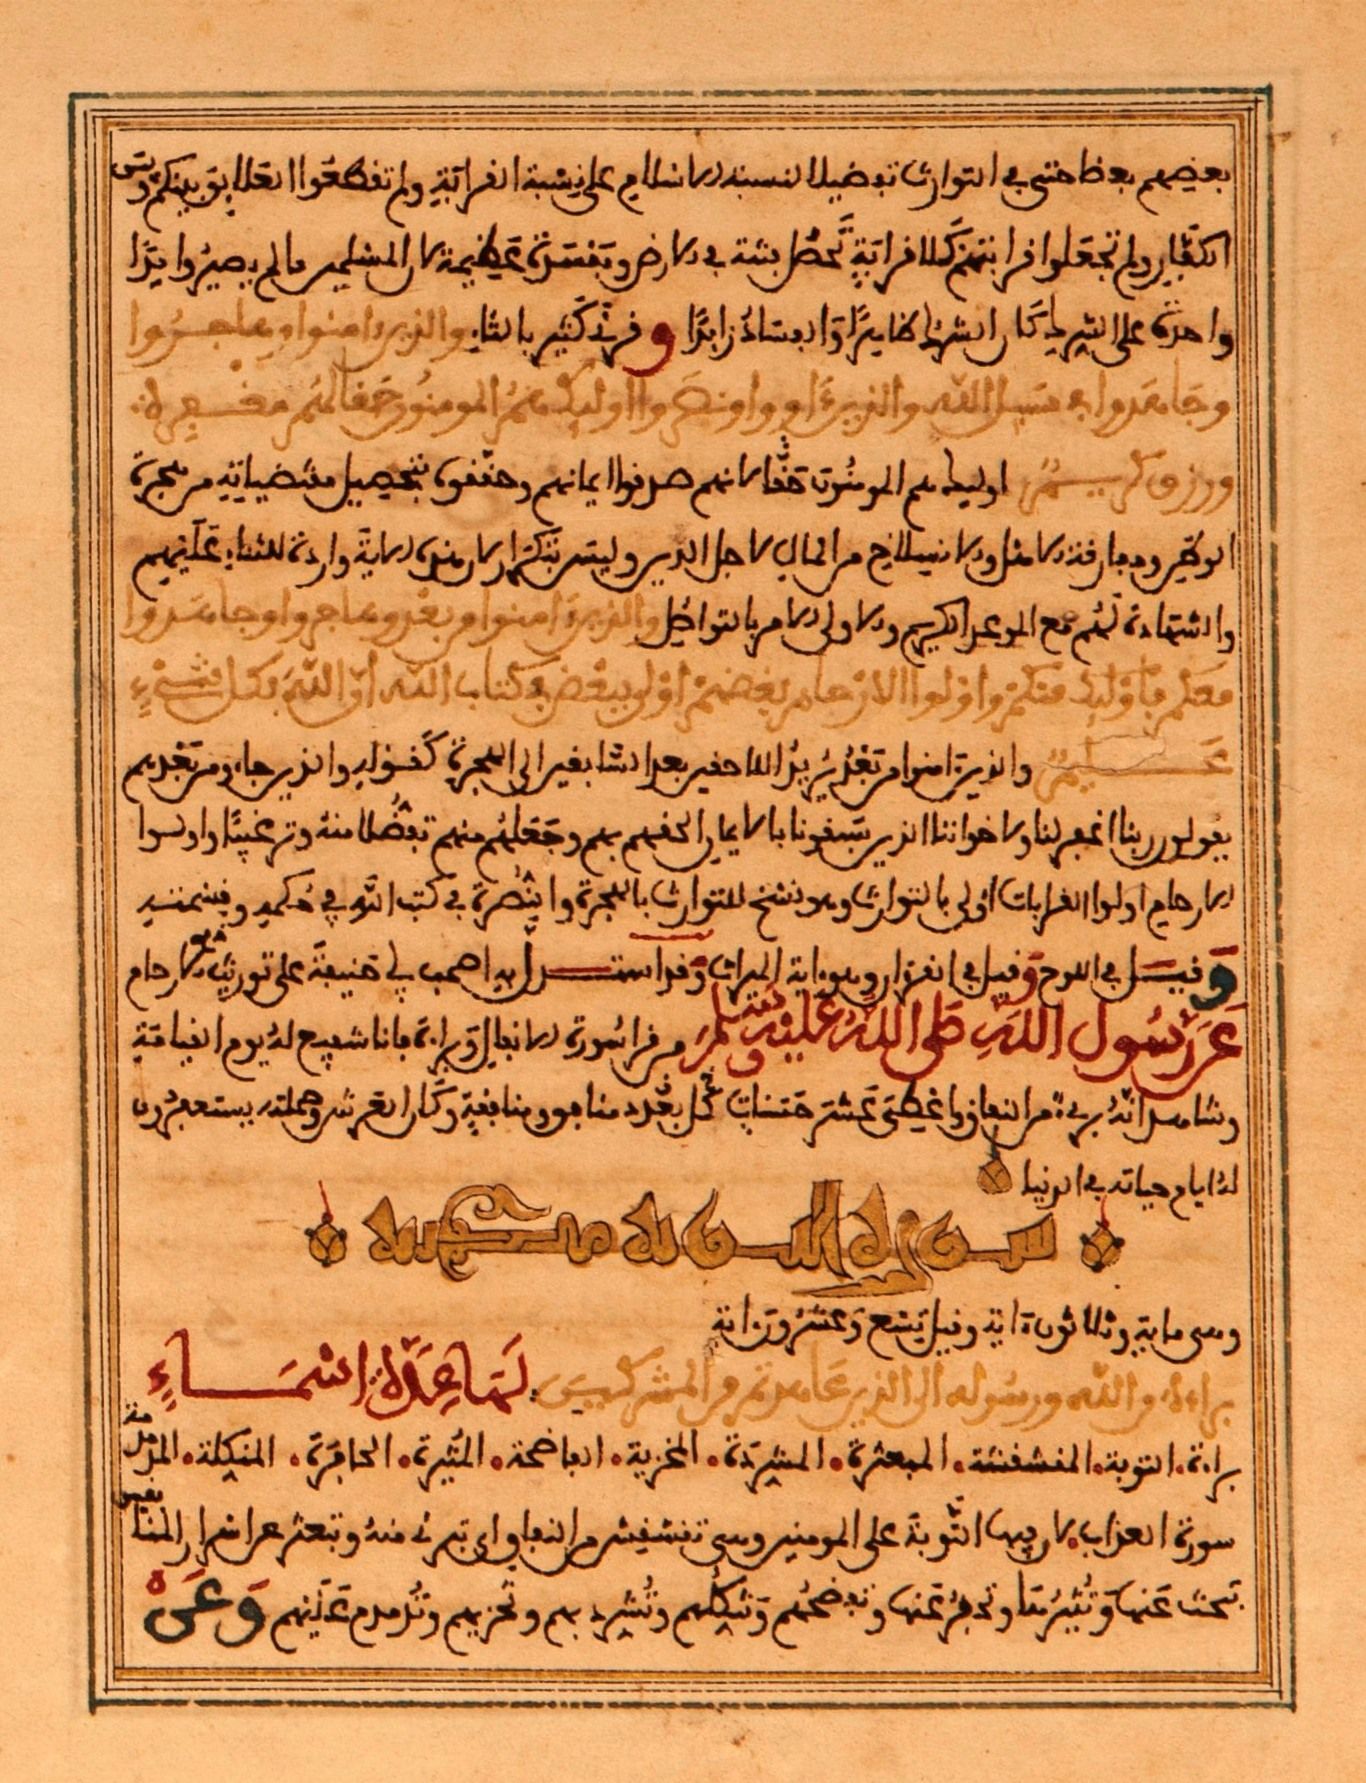 بعضهم بعضا حتى في التوارث تفضيلا لنسبة الاسلام على نسبة القرابة ولم تقطعوا العلايق بينكم وبين
الكفار ولم تجعلوا قرابتهم كلا قرابة تحصل فتنة في الارض ومفسدة عظيمة لان المسلمين ما لم يصيروا يدا
واحدة على الشرك كان الشرك ظاهرا والفساد زايدا وقرئ كثير بالثاء والذين ءامنوا وهاجروا
وجاهدوا في سبيل الله والذين ءاووا ونصروا اوليك هم المومنون حقا لهم مغفرة
ورزق كريم اوليك هم المومنون حقا لانهم صدقوا ايمانهم وحققوه بتحصيل مقتضياته من هجرة
الوطن ومفارقة الاهل والانسلاخ من المال لاجل الدين وليس بتكرار لان هذه الاية واردة للثناء عليهم
والشهادة لهم مع الموعد الكريم والاولى الامر بالتواصل والذين ءامنوا من بعد وهاجروا وجاهدوا
معكم فاوليك منكم واولوا الارحام بعضهم اولى ببعض في كتاب الله ان الله بكل شيء
عليم والذين ءامنوا من بعد يريد اللاحقين بعد السابقين الى الهجرة كقوله والذين جاءو من بعدهم
يقولون ربنا اغفر لنا ولاخواننا الذين سبقونا بالايمان الحقهم بهم وجعلهم منهم تفضلا منه وترغيبا واولوا
الارحام اولوا القرابات اولى بالتوارث وهو نسخ للتوارث بالهجرة والنصرة في كتب الله في حكمه وقسمته
وقيل في اللوح وقيل في القرءان وهو ءاية الميراث وقد استدل به اصحب ابي حنيفة على توريث ذوي الارحام
عن رسول الله صلى الله عليه وسلم من قرا سورة الانفال وبراءة فانا شفيع له يوم القيامة
وشاهد انه بريء من النفاق واعطي عشر حسنات بعدد كل منافق ومنافقة وكان العرش وحملته يستغفرون
له ايام حياته في الدنيا
سورة التوبة مدنية
وهي ماية وثلاثون ءاية وقيل تسع وعشرون ءاية
براءة من الله ورسوله الى الذين عاهدتم من المشركين لها عدة اسماء
براءة. التوبة. المقشقشة. المبعثرة. المشردة. المخزية. الفاضحة. المثيرة. الحافرة. المنكلة. المدمدمة
سورة العذاب. لان فيها التوبة على المومنين وهي تقشقش من النفاق اي تبرئ منه وتبعثر عن اسرار المنافقين
تبحث عنها وتثيرها وتحفر عنها وتفضحهم وتنكلهم وتشرد بهم وتخزيهم وتدمدم عليهم وعن